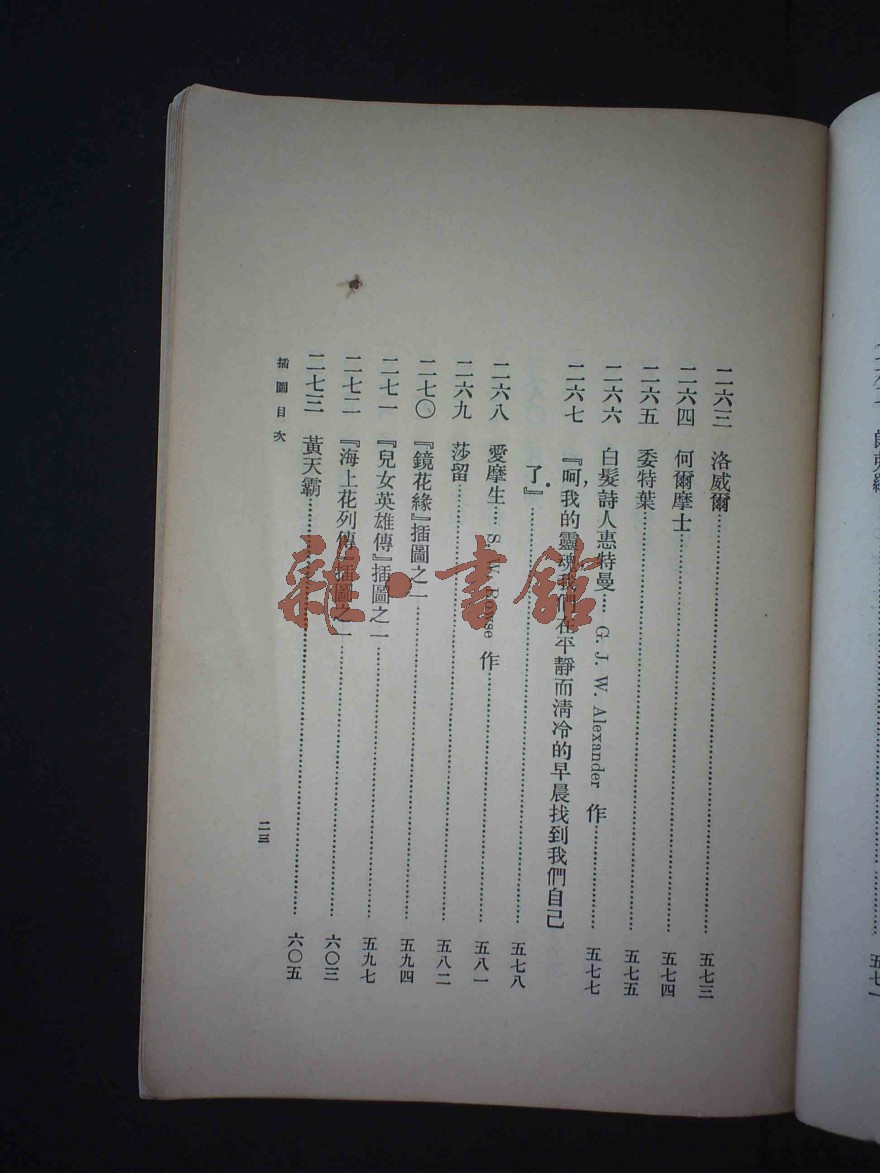 二六三 洛威爾 五七三
二六四 何爾摩士 五七四
二六五 委特葉 五七五
二六六 白髮詩人惠特曼 G. J. W. Alexander 作 五七七
二六七 『呵，我的靈魂，我們在平靜而清冷的早晨找到我們自己
了。』 五七八
二六八 愛摩生 S. W. Rowse 作 五八一
二六九 莎留 五八二
二七〇 『鏡花緣』插圖之一 五九四
二七一 『兒女英雄傳』插圖之一 五九七
二七二 『海上花列傳』插圖之一 六〇三
二七三 黃天霸 六〇五
插圖目次
二三
雜·書館
五七一